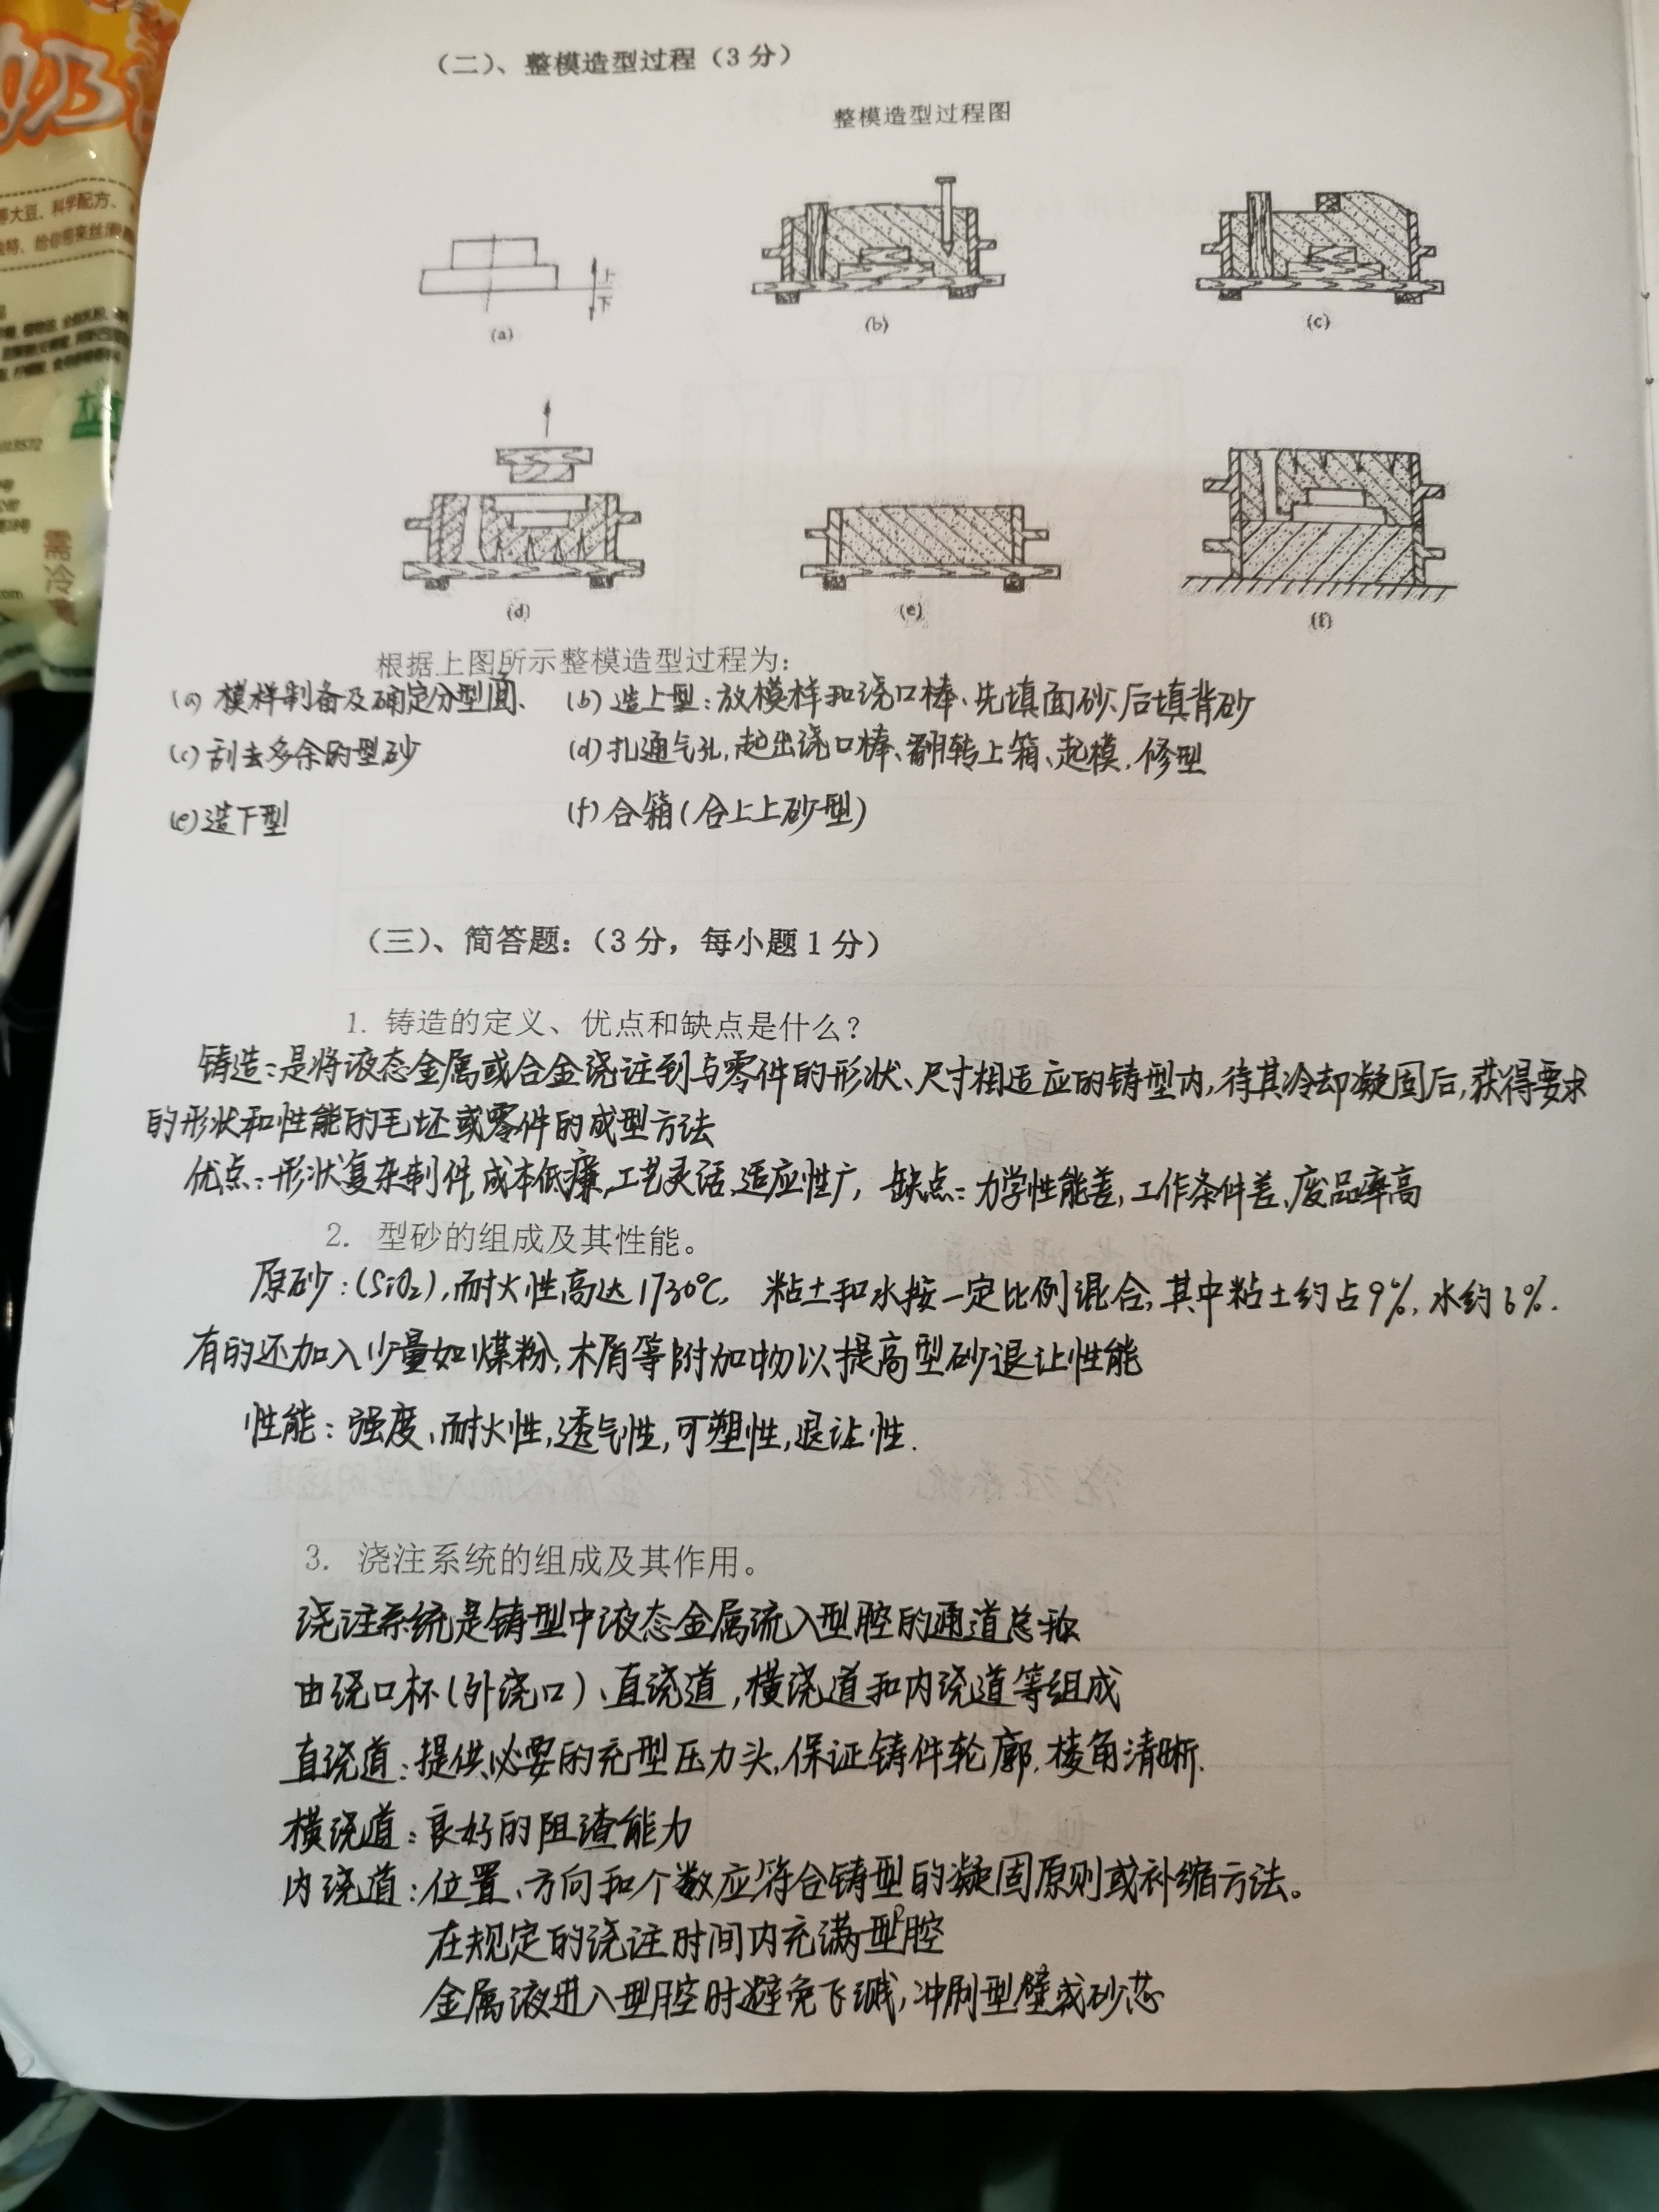 （二）、整模造型过程（3分）
整模造型过程图
上
下
(a)
(b)
(c)
(d)
(e)
(f)
根据上图所示整模造型过程为：
(a) 模样制备及确定分型面、 (b) 造上型：放模样和浇口棒、先填面砂、后填背砂
(c) 刮去多余的型砂 (d) 扎通气孔，起出浇口棒、翻转上箱、起模，修型
(e) 造下型 (f) 合箱（合上上砂型）
（三）、简答题：（3分，每小题1分）
1. 铸造的定义、优点和缺点是什么？
铸造：是将液态金属或合金浇注到与零件的形状、尺寸相适应的铸型内，待其冷却凝固后，获得要求
的形状和性能的毛坯或零件的成型方法
优点：形状复杂制件，成本低廉，工艺灵活、适应性广， 缺点：力学性能差，工作条件差、废品率高
2. 型砂的组成及其性能。
原砂：(SiO₂)，耐火性高达1730℃， 粘土和水按一定比例混合，其中粘土约占9%，水约6%.
有的还加入少量如煤粉，木屑等附加物以提高型砂退让性能
性能：强度、耐火性，透气性，可塑性，退让性.
3. 浇注系统的组成及其作用。
浇注系统是铸型中液态金属流入型腔的通道总称
由浇口杯（外浇口）、直浇道，横浇道和内浇道等组成
直浇道：提供必要的充型压力头，保证铸件轮廓，棱角清晰.
横浇道：良好的阻渣能力
内浇道：位置、方向和个数应符合铸型的凝固原则或补缩方法。
在规定的浇注时间内充满型腔
金属液进入型腔时避免飞溅，冲刷型壁或砂芯
等大豆、科学配方、
需冷藏